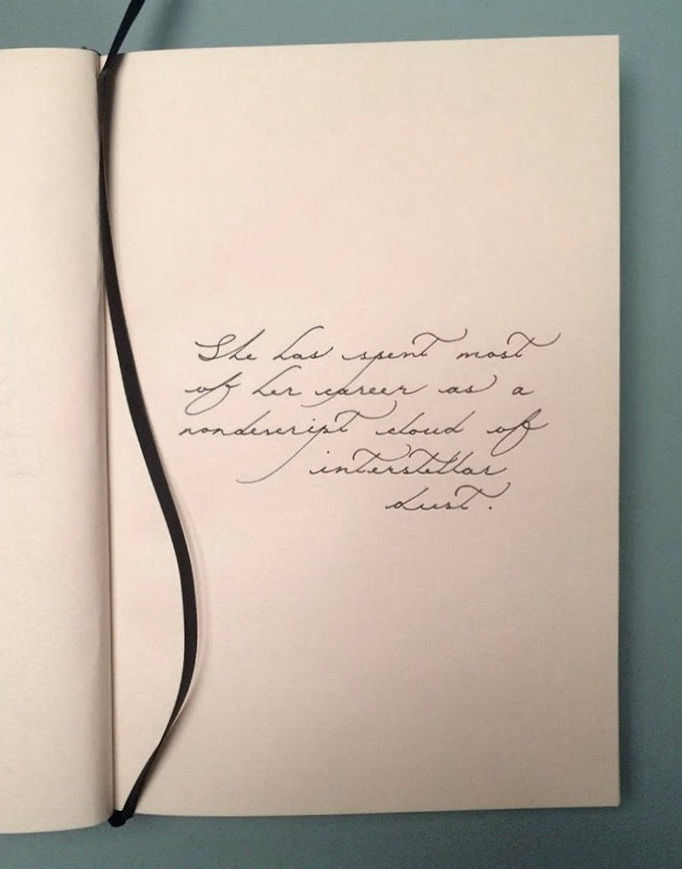 She has spent most
of her career as a
nondescript cloud of
interstellar
dust.